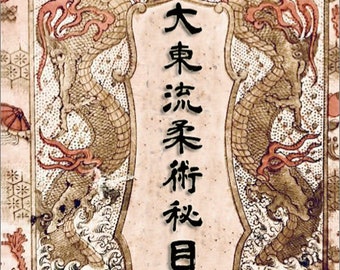 大東流柔術秘目